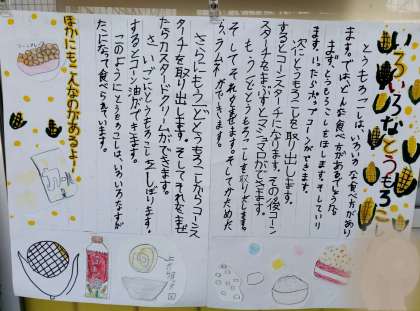 いろいろなとうもろこし
とうもろこしは、いろいろな食べ方があり
ます。では、どんな食べ方があるでしょうか。
まず、とうもろこしをほします。そしていり
ます。いったらポップコーンができます。
次にとうもろこしを取り出します。
するとコーンスターチになります。その後コーン
スターチをまぶすとマシュマロができます。
もう一つとうもろこしを取りだします。
そしてそれをまぜます。そしてかためた
ら、ラムネができます。
さらにもう一つとうもろこしからコーンス
ターチを取り出します。そしてそれをまぜ
たらカスタードクリームができます。
さいごにとうもろこしをしぼります。
するとコーン油ができます。
このようにとうもろこしは、いろいろなすが
たになって食べられています。
ほかにもこんなのがあるよ！